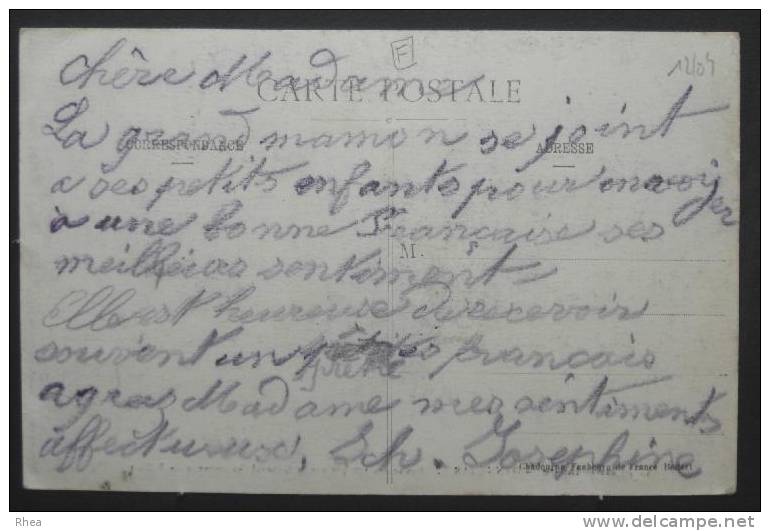 F
12/04
chère Madame
CARTE POSTALE
La grand mamon se joint
CORRESPONDANCE
ADRESSE
a ses petits enfants pour envoyer
à une bonne Française ses
M.
meilleurs sentiments
Elle est heureuse de recevoir
souvent un prêtre français
agrez Madame mes sentiments
affectueux, Sch. Josephine
Faubourg de France
Rhea
http://www.delcampe.net